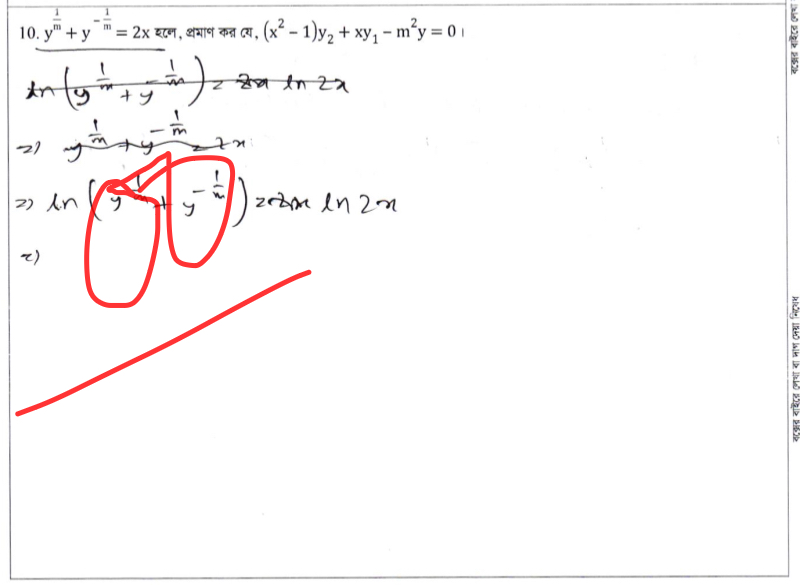 10. y^(1/m) + y^(-1/m) = 2x হলে, প্রমাণ কর যে, (x² − 1)y₂ + xy₁ − m²y = 0।
ln (y^(1/m) + y^(-1/m)) = ln 2x
=) y^(1/m) + y^(-1/m) = 2x
=) ln (y^(1/m) + y^(-1/m)) = ln 2x
=)
বক্সের বাইরে লেখা
বক্সের বাইরে লেখা বা দাগ দেয়া নিষেধ